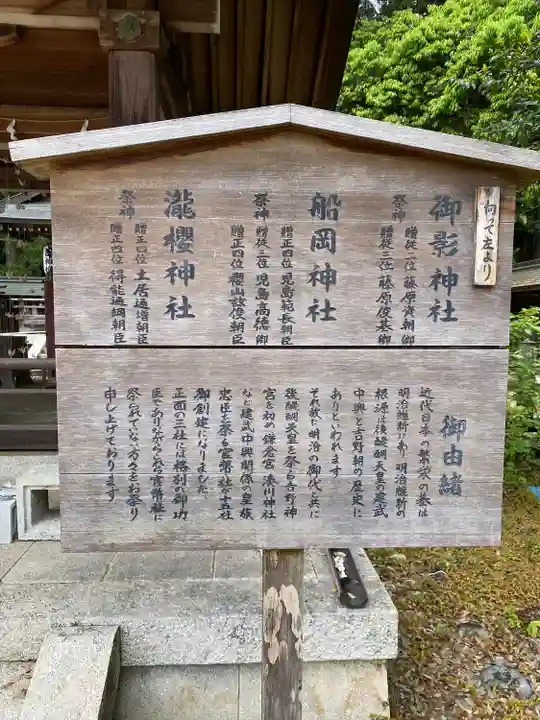 向って左より
御影神社
祭神
贈従二位 藤原資朝卿
贈従三位 藤原俊基卿
船岡神社
祭神
贈正四位 児島範長朝臣
贈従三位 児島高徳卿
贈正四位 櫻山茲俊朝臣
瀧櫻神社
祭神
贈正四位 土居通増朝臣
贈正四位 得能通綱朝臣
御由緒
近代日本の繁栄の基は
明治維新に有り 明治維新の
根源は後醍醐天皇の建武
中興と吉野朝の歴史に
ありといわれます
それ故に明治の御代と共に
後醍醐天皇を祭る吉野神
宮を初め鎌倉宮 湊川神社
など建武中興関係の皇族
忠臣を祭る官幣社の十五社
御創建になりました
正面の三社には格別の御功
臣でありながらかかる官幣社に
祭られてない方々をお祭り
申し上げております